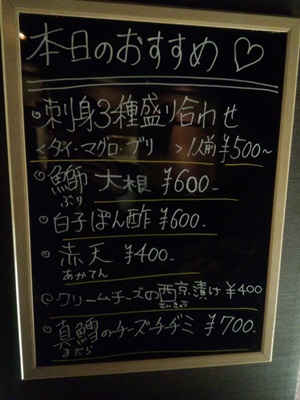 本日のおすすめ♡
刺身3種盛り合わせ
<タイ・マグロ・ブリ> 1人前¥500~
鰤 大根 ¥600-
ぶり
白子ぽん酢 ¥600-
赤天 ¥400-
あかてん
クリームチーズの西京漬け ¥400
さいきょう
真鱈のチーズチヂミ ¥700-
まだら